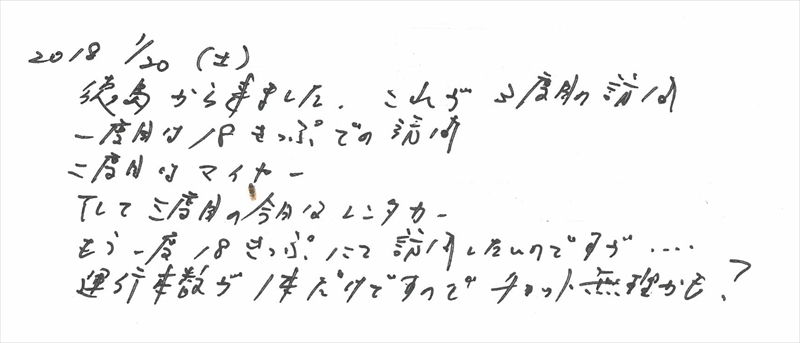 2018 1/20 (土)
徳島から来ました. これが3度目の訪問
一度目は18きっぷでの訪問
二度目はマイカー
そして三度目の今回はレンタカー
もう一度18きっぷにて訪問したいのですが....
運行本数が1本だけですのでチョット無理かも?